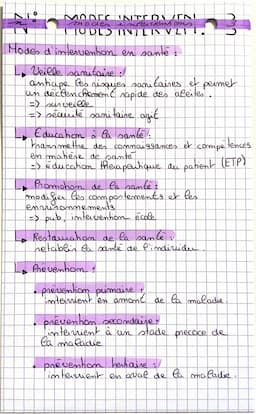 N° MODES INTERVENT. 3
modes interventions
Modes d'intervention en santé :
→ Veille sanitaire :
anticipe les risques sanitaires et permet
un déclenchement rapide des alertes.
=> surveille
=> sécurité sanitaire agit
→ Education à la santé :
transmettre des connaissances et compétences
en matière de santé
=> éducation thérapeutique du patient (ETP)
→ Promotion de la santé :
modifier les comportements et les
environnements
=> pub, intervention école
→ Restauration de la santé :
rétablir la santé de l'individu.
→ Prévention :
• prévention primaire :
intervient en amont de la maladie.
• prévention secondaire :
intervient à un stade précoce de
la maladie
• prévention tertiaire :
intervient en aval de la maladie.